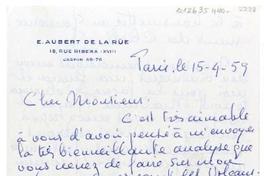 E. AUBERT DE LA RÜE
18, RUE RIBERA - XVI
JASMIN 49-76
Paris, le 15-4-59
Cher Monsieur,
C'est très aimable
à vous d'avoir pensé à m'envoyer
la très bienveillante analyse que
vous venez de faire sur mon